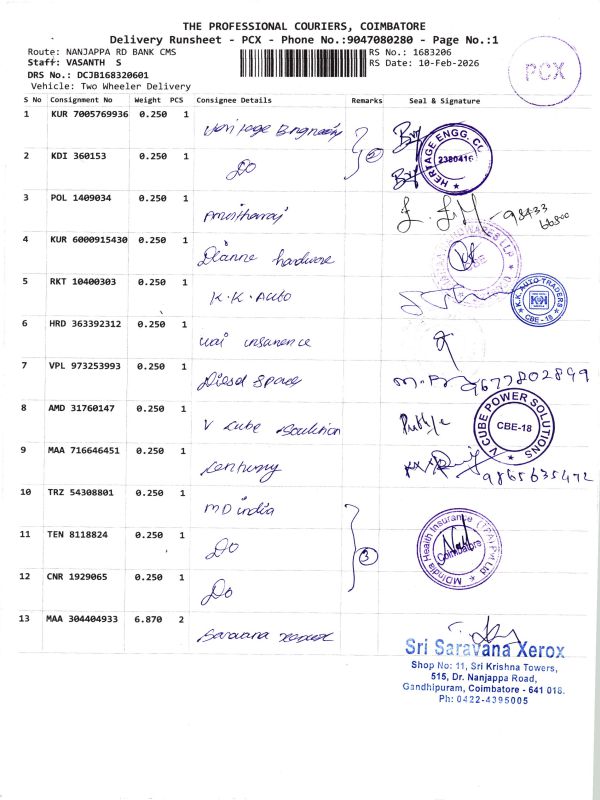 THE PROFESSIONAL COURIERS, COIMBATORE
Delivery Runsheet - PCX - Phone No.:9047080280 - Page No.:1
Route: NANJAPPA RD BANK CMS
RS No.: 1683206
Staff: VASANTH S
RS Date: 10-Feb-2026
DRS No.: DCJB168320601
Vehicle: Two Wheeler Delivery
PCX
S No Consignment No Weight PCS Consignee Details Remarks Seal & Signature
1 KUR 7005769936 0.250 1 Heritage Engineering
2 KDI 360153 0.250 1 Do
2
HERITAGE ENGG. CO.
2380416
3 POL 1409034 0.250 1
98433
4 KUR 6000915430 0.250 1 Dianne hardware
5 RKT 10400303 0.250 1 K.K. Auto
K.K AUTO TRADERS
CBE - 18
6 HRD 363392312 0.250 1
7 VPL 973253993 0.250 1 Diesel Space
9677802899
8 AMD 31760147 0.250 1 V Cube Soulition
V CUBE POWER SOLUTIONS
CBE-18
9 MAA 716646451 0.250 1 Century
9865635472
10 TRZ 54308801 0.250 1 MD india
11 TEN 8118824 0.250 1 Do
3
MDIndia Health Insurance (TPA) Pvt Ltd
Coimbatore
12 CNR 1929065 0.250 1 Do
13 MAA 304404933 6.870 2 Saravana xerox
Sri Saravana Xerox
Shop No: 11, Sri Krishna Towers,
515, Dr. Nanjappa Road,
Gandhipuram, Coimbatore - 641 018.
Ph: 0422-4395005